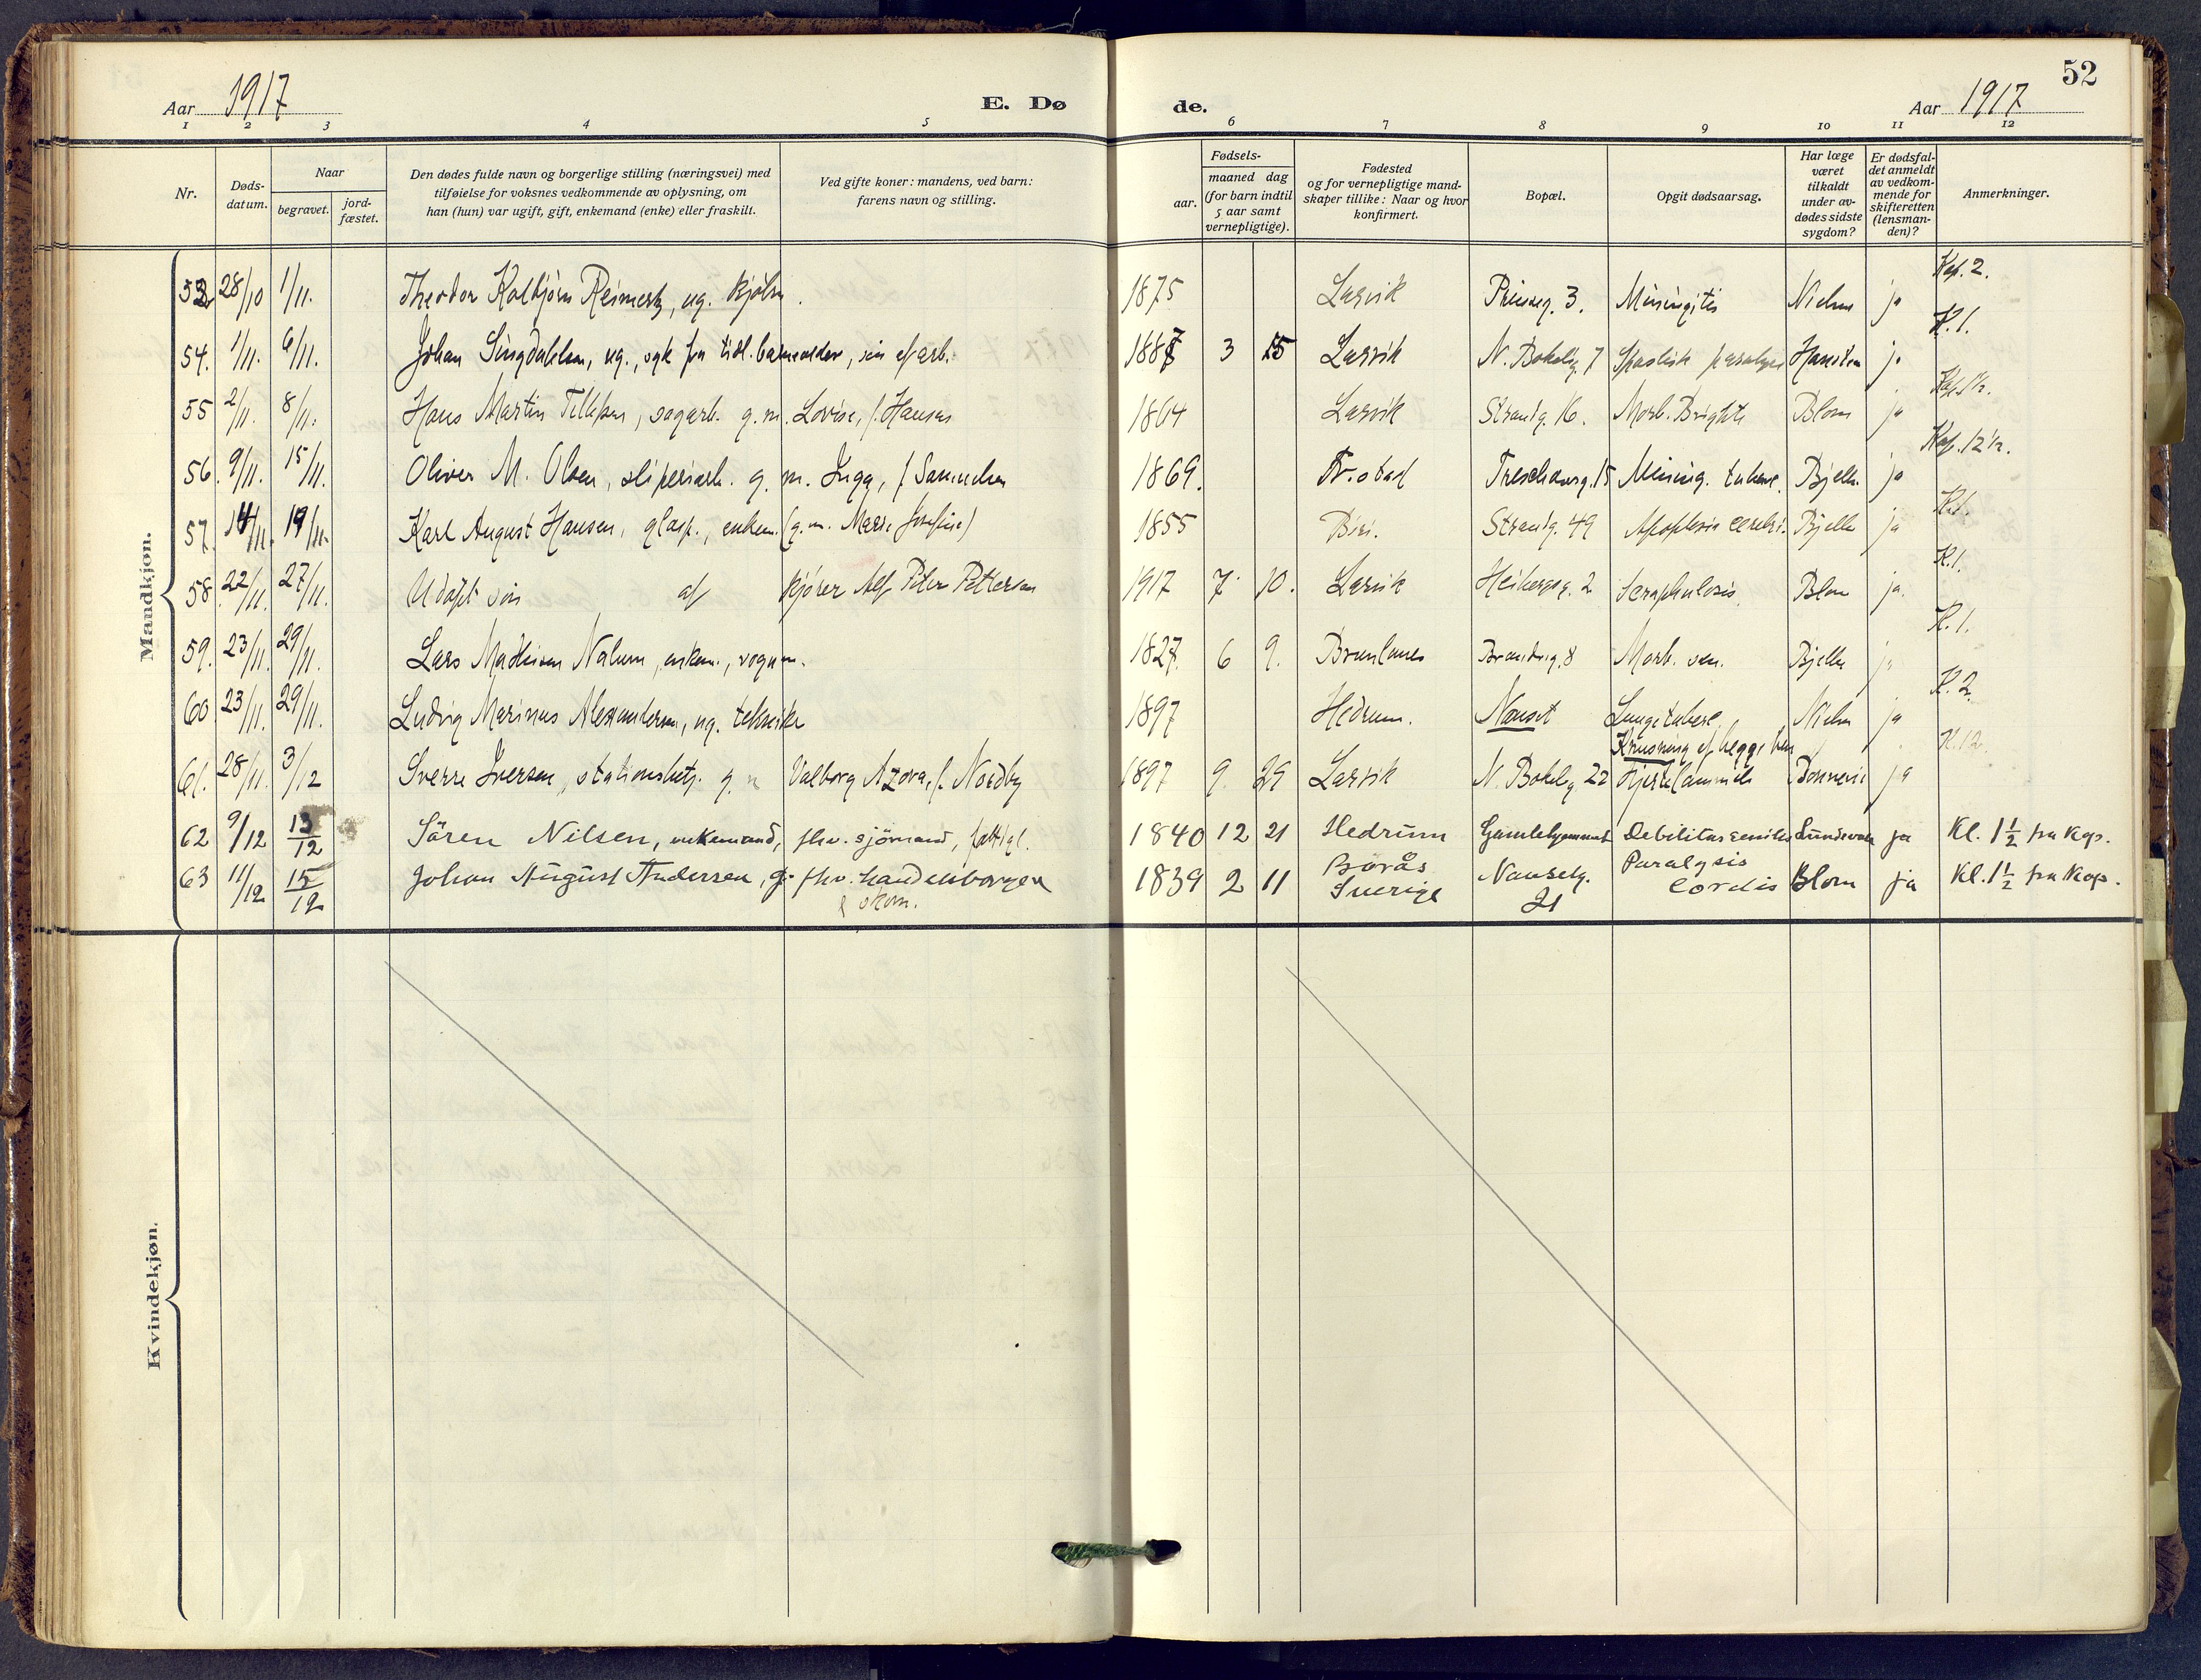 52
Aar 1917 E. Dø de. Aar 1917
1 2 3 4 5 6 7 8 9 10 11 12
Nr.
Døds-
datum.
Naar
begravet.
jord-
fæstet.
Den dødes fulde navn og borgerlige stilling (næringsvei) med
tilføielse for voksnes vedkommende av oplysning, om
han (hun) var ugift, gift, enkemand (enke) eller fraskilt.
Ved gifte koner: mandens, ved barn:
farens navn og stilling.
Fødsels-
aar.
maaned dag
(for barn indtil
5 aar samt
vernepligtige).
Fødested
og for vernepligtige mand-
skaper tillike: Naar og hvor
konfirmert.
Bopæl.
Opgit dødsaarsag.
Har læge
været
tilkaldt
under av-
dødes sidste
sygdom?
Er dødsfal-
det anmeldt
av vedkom-
mende for
skifteretten
(lensman-
den)?
Anmerkninger.
Mandkjøn.
53 28/10 1/11. Theodor Kolbjørn ug. 1875 Larvik 3. Nielsen ja Kap. 2.
54. 1/11. 6/11. Johan ug., syk fra tidl. barnealder, søn af arb. 188 3 15 Larvik N. Bokelg. 7 Spastisk paralyse ja K. 1.
55 2/11. 8/11. Hans Martin sagarb. g. m. Lovise, f. Hansen 1864 Larvik Strandg. 16. Morb. Brightii Blom ja
56. 9/11. 15/11. Oliver M. Olsen, sliperiarb. g. m. Inga, f Samuelsen 1869. Fr.stad Treschowsg. 15 Mening. tuberc. Bjelke ja Kap. 12½.
57. 14/11. 19/11. Karl August Hansen, enkem. (g. m. Josefine) 1855 Biri. Strandg. 49 Apoplexia cerebri. Bjelke ja K. 1.
58. 22/11. 27/11. Udøpt søn af kjører Alf Peter Pettersen 1917 7. 10. Larvik Heibergsg. 2 Scrophulosis Blom ja. K. 1.
59. 23/11. 29/11. Lars Nalum, enkem., vognm. 1827. 6 9. Brunlanes 8 Morb. sen. Bjelke ja K. 1.
60. 23/11. 29/11. Ludvig Marinus Alexandersen, ug. tekniker 1897 Hedrum. Nanset Lungetuberc. Nielsen ja K. 2.
61. 28/11. 3/12 Sverre Iversen, stationsbetj. g. m Valborg Azora, f. Nordby 1897 9. 29 Larvik N. Bokelg 22 Knusning af begge ben Hjertelammelse ja K. 12.
62 9/12 13/12 Sören Nilsen, enkemand, fhv. sjömand, fattigl. 1840 12 21 Hedrum Gamlehjemmet Debilitas senilis ja Kl. 1½ fra Kap.
63 11/12 15/12 Johan August Andersen, g. fhv. handelsborger
& skom. 1839 2 11 Borås
Sverige Nansetg.
21 Paralysis
cordis Blom ja Kl. 1½ fra Kap.
Kvindekjøn.